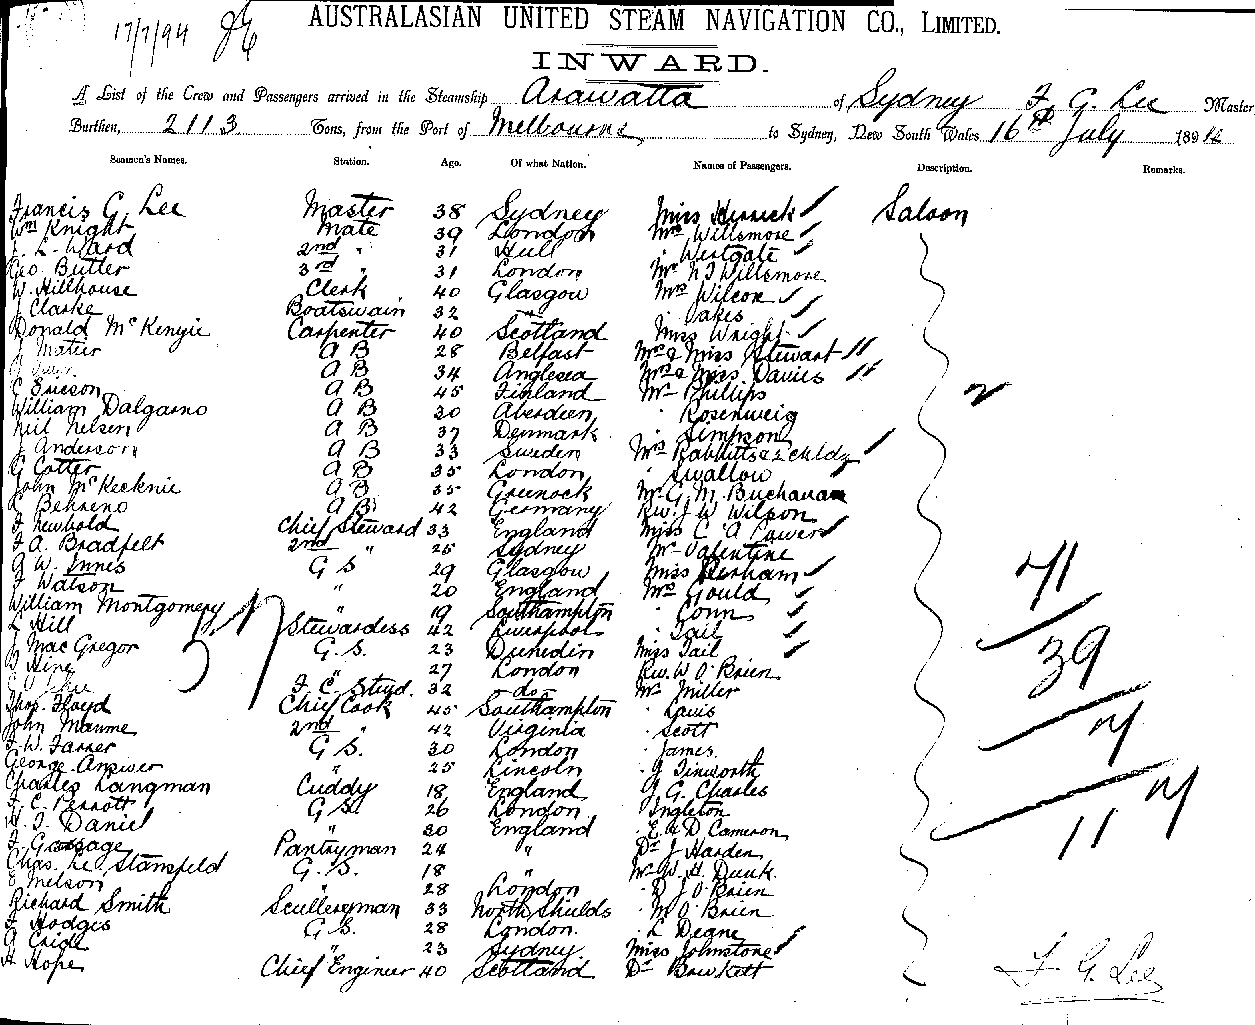 17/7/94
AUSTRALASIAN UNITED STEAM NAVIGATION CO., LIMITED.
INWARD.
A List of the Crew and Passengers arrived in the Steamship Arawatta of Sydney F. G. Lee Master
Burthen, 2113 Tons, from the Port of Melbourne to Sydney, New South Wales 16th July 1894
Seamen's Names. Station. Age. Of what Nation. Names of Passengers. Description. Remarks.
Francis G. Lee Master 38 Sydney Miss Herrick Saloon
Wm Knight Mate 39 London Mrs Willsmore
L. Ward 2nd " 31 Hull " Westgate
Geo. Butler 3rd " 31 London Mr N T Willsmore
W. Hillhouse Clerk 40 Glasgow Mrs Wilcox
J Clarke Boatswain 32 " " Oakes
Donald McKenzie Carpenter 40 Scotland Miss Wright
J Matier A B 28 Belfast Mrs & Miss Stewart
A B 34 Anglesea Mrs & Miss Davies
C Ericson A B 45 Finland Mr Phillips
William Dalgarno A B 30 Aberdeen " Rosenweig
Neil Nelsen A B 37 Denmark " Simpson
J Anderson A B 33 Sweden Mrs Rabbitts & 2 childn
G Cotter A B 35 London " Swallow
John McKecknie A B 35 Greenock Mr G. M. Buchanan
L Behreno A B 42 Germany Rev. J W Wilson
F Newbold Chief Steward 33 England Miss C A Powers
F A. Bradfelt 2nd " 25 Sydney Mr Valentine
A W. Innes G S 29 Glasgow Miss Derham
F Watson " 20 England Mrs Gould
William Montgomery " 19 Southampton " Conn
L Hill Stewardess 42 Liverpool " Tail
J MacGregor G. S. 23 Dunedin Miss Tail
Hine " 27 London Rev. W O'Brien
F. C. Stwd. 32 do Mr Miller
Thos. Floyd Chief Cook 45 Southampton " Lewis
John Mawme 2nd " 42 Virginia " Scott
F. W. Farrer G S. 30 London " James
George Anziser " 25 Lincoln " J Tinworth
Charles Langman Cuddy 18 England " J G. Charles
F. C. Perrott G S. 26 London " Ingleton
H. J. Daniel " 30 England " E. & D Cameron
F. Gossage Pantryman 24 " Dr J Harden
Chas. Le Stansfeld G. S. 18 " Mr W. H. Dunk
E Melson " 28 London " D J O'Brien
Richard Smith Sculleryman 33 North Shields " M O'Brien
F Hodges G S. 28 London " L Deane
G Cride " 23 Sydney Miss Johnstone
A Hope Chief Engineer 40 Scotland Dr Bowkett
71
39
11
F. G. Lee